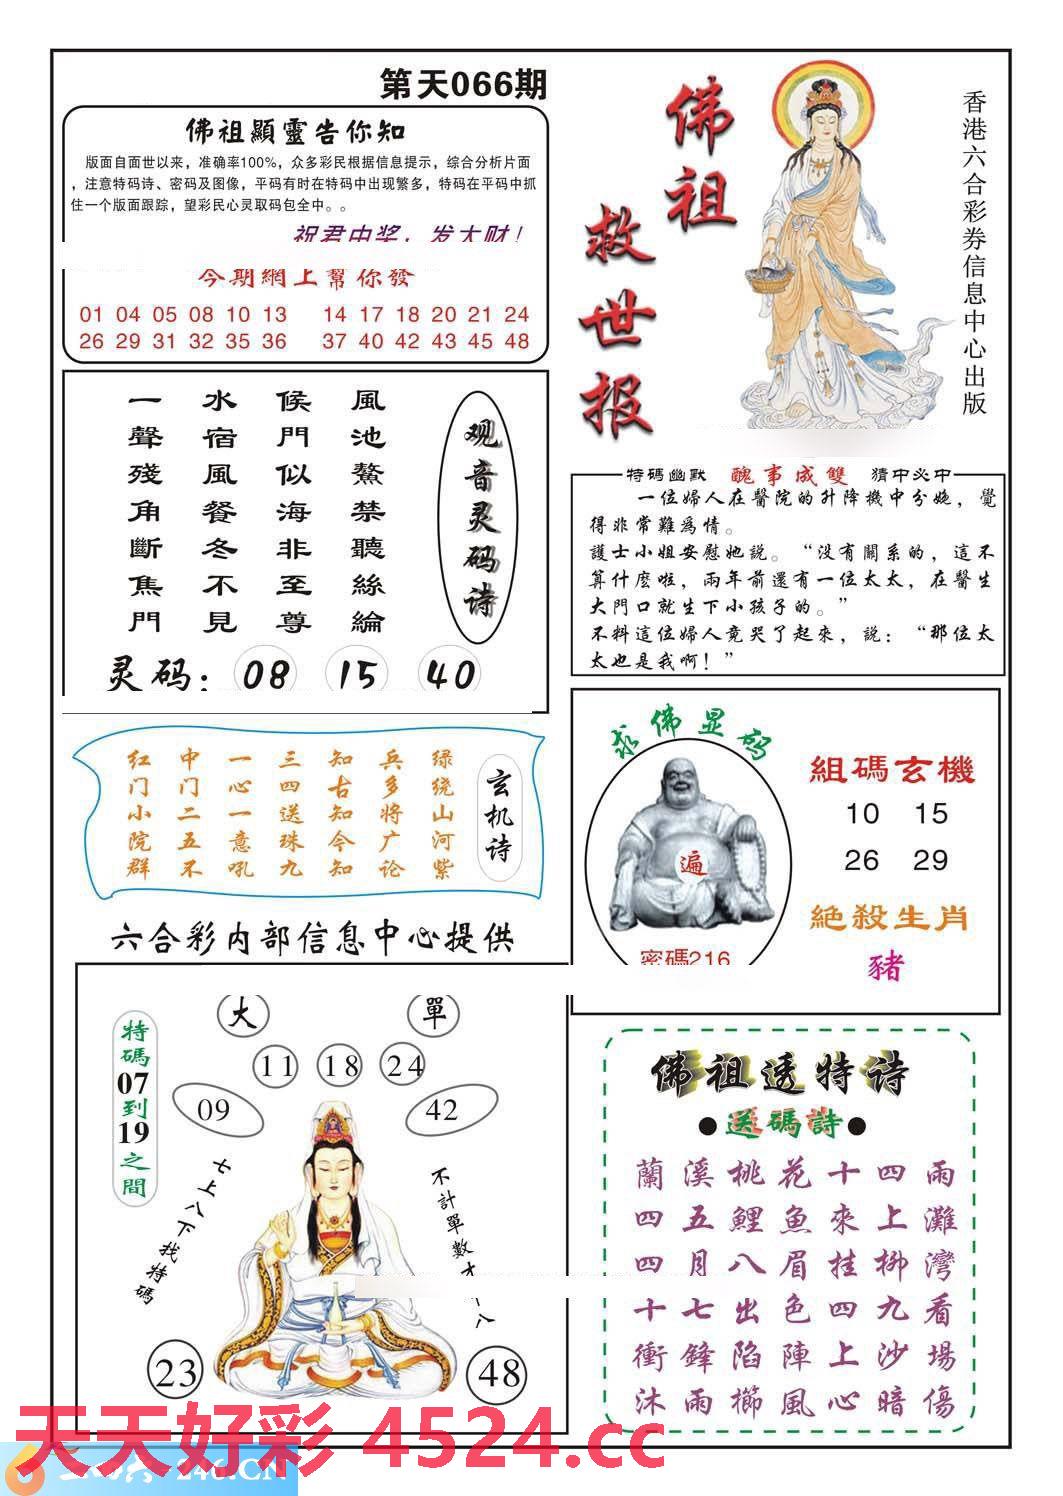 第天066期
佛祖顯靈告你知
版面自面世以来，准确率100%，众多彩民根据信息提示，综合分析片面
，注意特码诗、密码及图像，平码有时在特码中出现繁多，特码在平码中抓
住一个版面跟踪，望彩民心灵取码包全中。。
祝君中奖，发大财！
今期網上幫你發
01 04 05 08 10 13 14 17 18 20 21 24
26 29 31 32 35 36 37 40 42 43 45 48
佛祖
救世报
香港六合彩券信息中心出版
观音灵码诗
風池鰲禁聽絲綸
侯門似海非至尊
水宿風餐冬不見
一聲殘角斷焦門
灵码：08 15 40
特碼幽默 醜事成雙 猜中必中
一位婦人在醫院的升降機中分娩，覺
得非常難為情。
護士小姐安慰她説。“没有關系的，這不
算什麽啦，兩年前還有一位太太，在醫生
大門口就生下小孩子的。”
不料這位婦人竟哭了起來，説：“那位太
太也是我啊！”
玄机诗
绿绕山河紫
兵多将广论
知古知今知
三四送珠九
一心一意吼
中门二五不
红门小院群
求佛显码
遍
密碼216
組碼玄機
10 15
26 29
絶殺生肖
豬
六合彩内部信息中心提供
特碼07到19之間
大
單
11
18
24
09
42
七上八下找特碼
不計單數才 八
23
48
佛祖透特诗
●送碼詩●
蘭溪桃花十四雨
四五鯉魚來上灘
四月八眉挂柳灣
十七出色四九看
衝鋒陷陣上沙場
沐雨櫛風心暗傷
天天好彩 4524.cc
246.CN